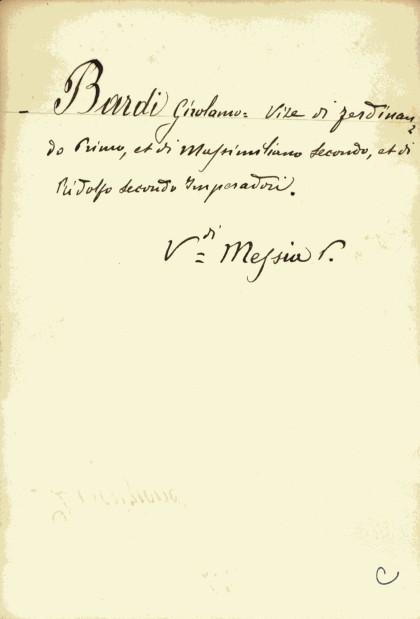 Bardi Girolamo= Vite di Ferdinan=
do Primo, et di Massimiliano secondo, et di
Ridolfo secondo Imperadori.
V=di Messia P.
C